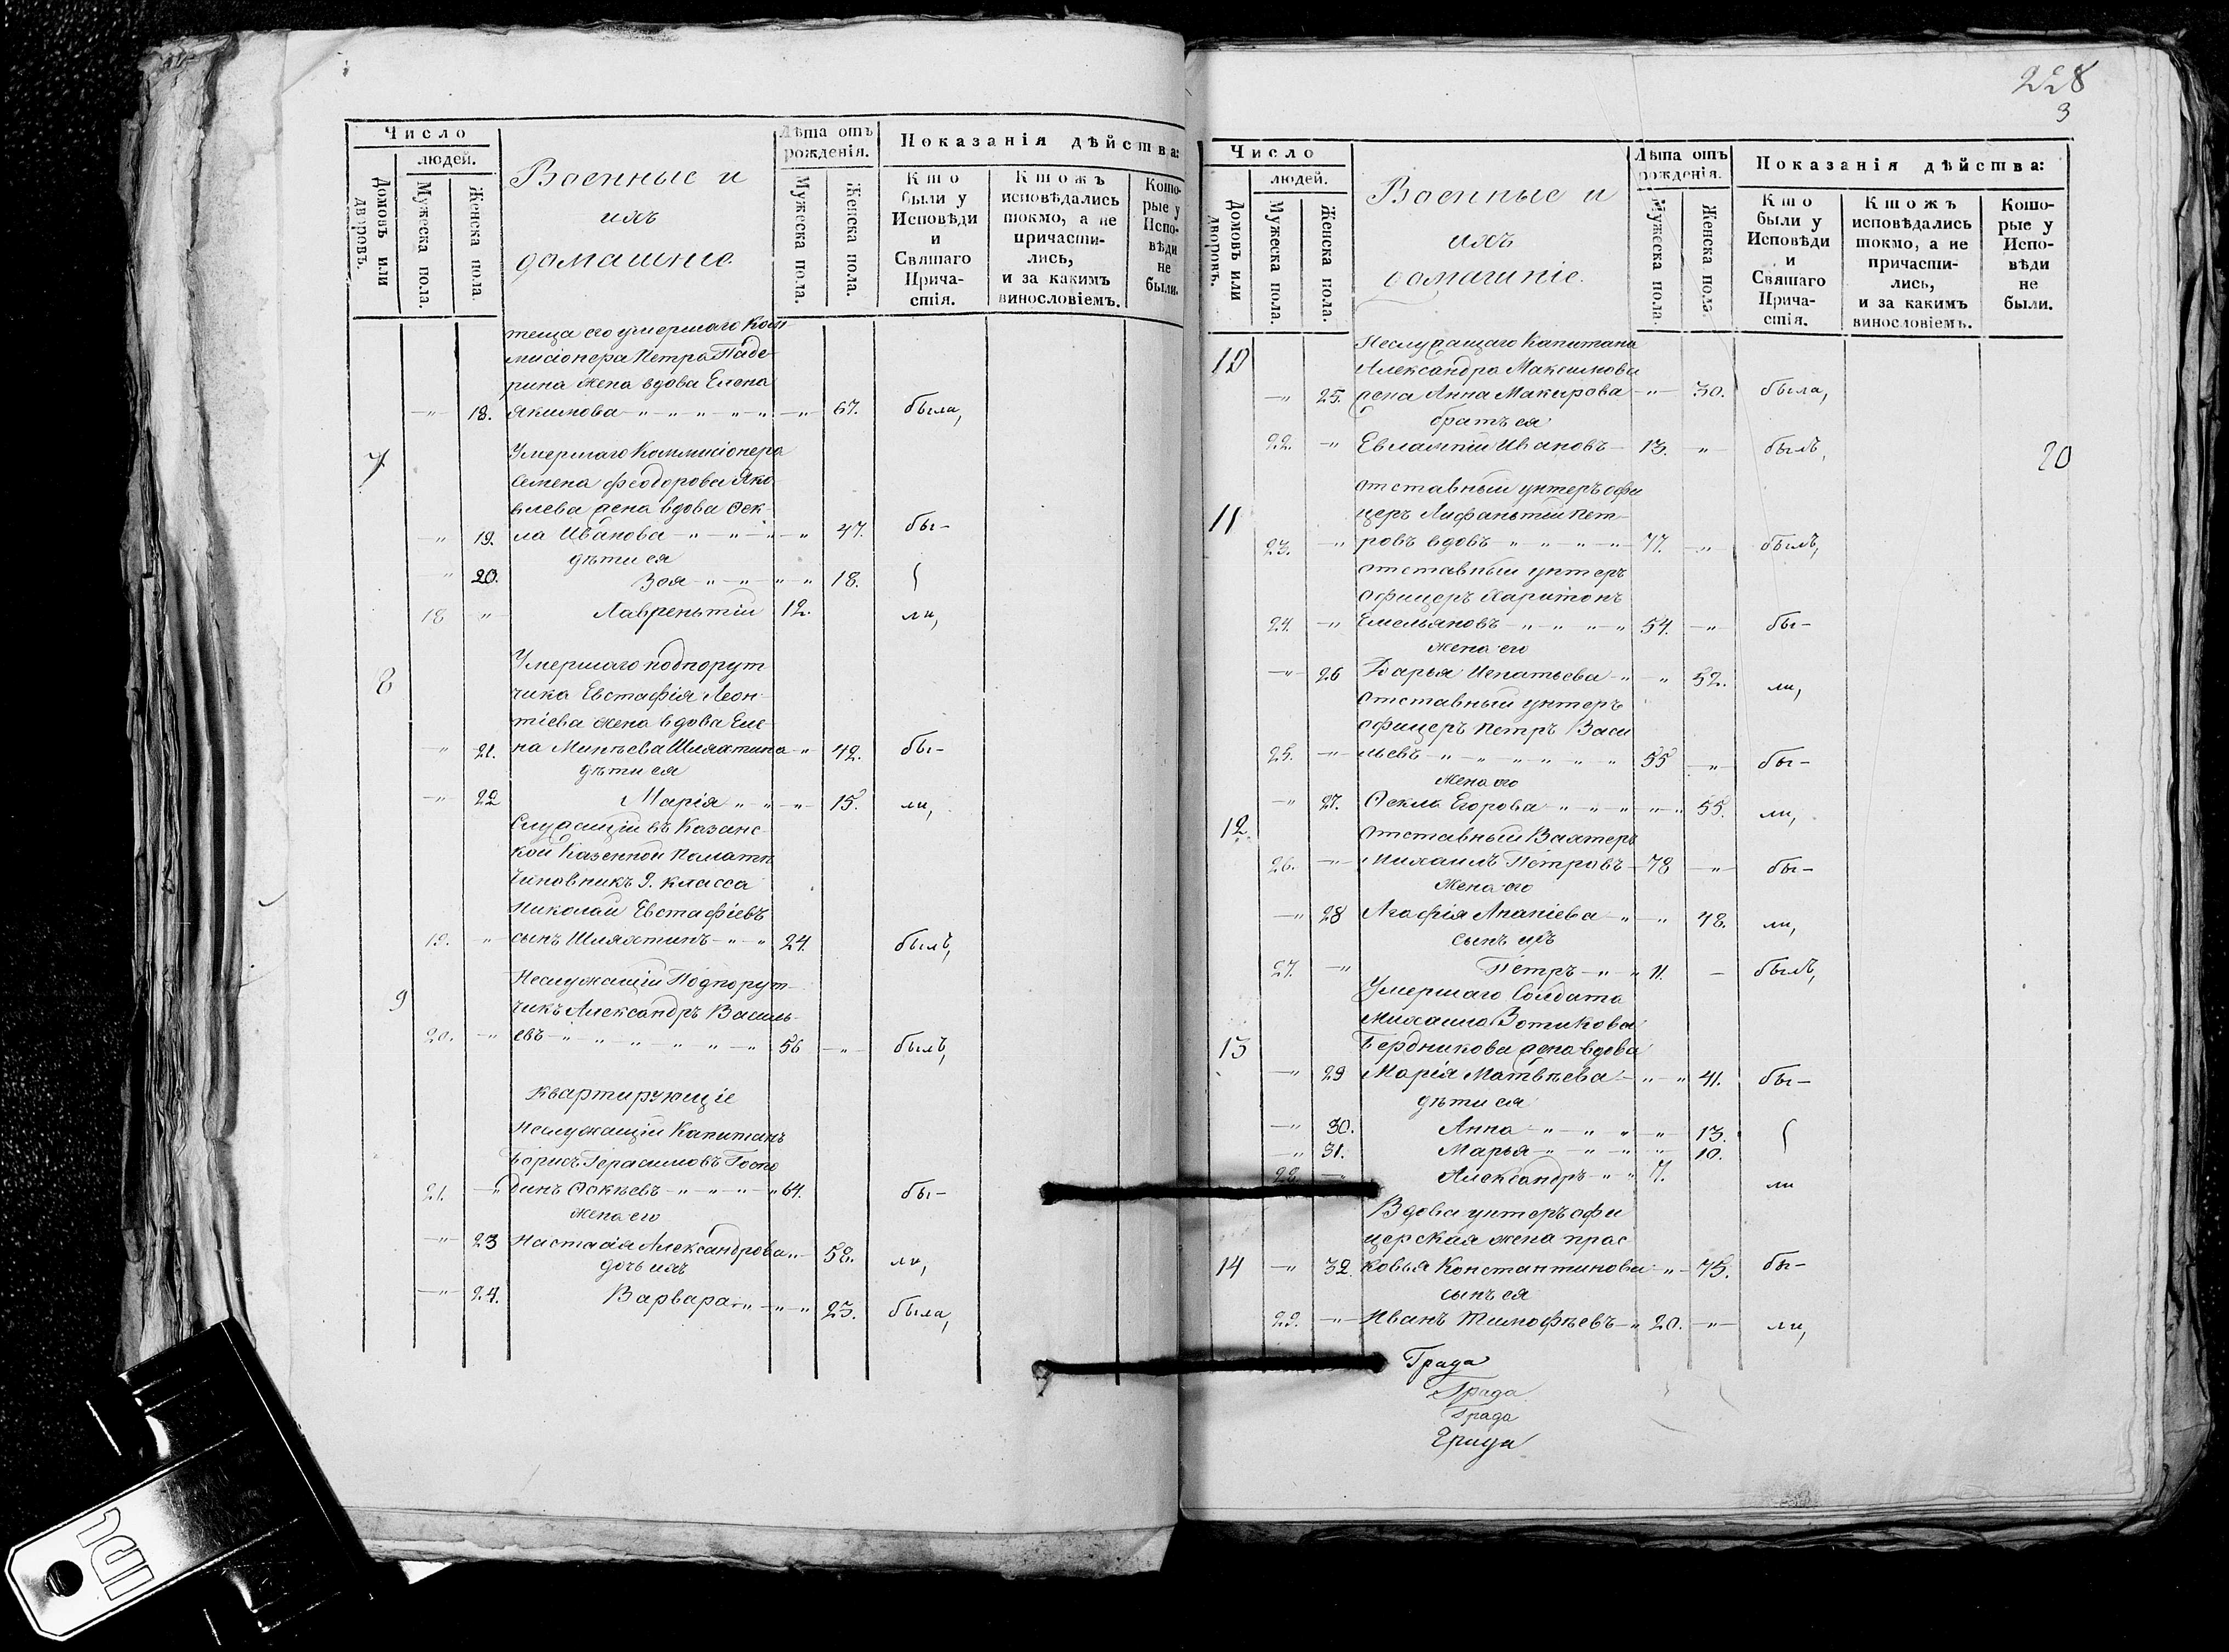 Число
людей.
Домовъ или дворовъ.
Мужеска пола.
Женска пола.
Военные и
ихъ
домашніе
Лѣта отъ рожденія.
Мужеска пола.
Женска пола.
Показанія дѣйства:
Кто были у Исповѣди и Святаго Причастія.
Ктожъ исповѣдались токмо, а не причастились, и за какимъ винословіемъ.
Которые у Исповѣди не были.
теща его умершаго Ком
мисіонера Петра Паде
рина жена вдова Елена
18. Акимова 67. была,
7 Умершаго Коммисіонера
Семена Феодорова Яко
влева жена вдова Өек
19. ла Иванова 47. бы-
дѣти ея
20. Зоя 18.
18 Лаврентій 12. ли,
8 Умершаго подпорут
чика Евстафія Леон
тіева жена вдова Еле
21. на Минѣева Шляхтина 42. бы-
дѣти ея
22 Марія 15. ли,
Служащій въ Казанс
кой Казенной Палатѣ
Чиновникъ 9. класса
Николай Евстафіевъ
19. сынъ Шляхтинъ 24. былъ,
9 Неслужащій Подпорут
чикъ Александръ Василь
20. евъ 56 былъ,
Квартирующіе
Неслужащій Капитанъ
Борисъ Герасимовъ Госпо
21. динъ 64. бы-
жена его
23 Настасія Александрова 58. ли,
дочь ихъ
24. Варвара 23. была,
228
3
Число
людей.
Домовъ или дворовъ.
Мужеска пола.
Женска пола.
Военные и
ихъ
домашніе.
Лѣта отъ рожденія.
Мужеска пола.
Женска пола.
Показанія дѣйства:
Кто были у Исповѣди и Святаго Причастія.
Ктожъ исповѣдались токмо, а не причастились, и за какимъ винословіемъ.
Которые у Исповѣди не были.
10 Неслужащаго Капитана
Александра Максимова
25. жена Анна Макарова 30. была,
братъ ея
22. Евлампій Ивановъ 13. былъ,
20
отставный унтеръ офи
11 церъ Лифантій Пет
23. ровъ вдовъ 77. былъ,
отставный унтеръ
офицеръ Харитонъ
24. Емельяновъ 54. бы-
жена его
26 Дарья Игнатьева 52. ли,
отставный унтеръ
офицеръ Петръ Васи
25. льевъ 55 бы-
жена его
27. Өекла Егорова 55. ли,
12. отставный Вахтеръ
26. Михаилъ Петровъ 78 бы-
жена его
28 Агафія Ананіева 48. ли,
сынъ ихъ
27. Петръ 11. былъ,
Умершаго Солдата
Михаила Вотикова
13 Бердникова жена вдова
29 Марія Матвѣева 41. бы-
дѣти ея
30. Анна 13.
31. Марья 10.
28. Александръ 7. ли
Вдова унтеръ офи
церская жена Прас
14 32. ковья Константинова 75. бы-
сынъ ея
29. Иванъ Тимофѣевъ 20. ли,
Града
Града
Града
Града